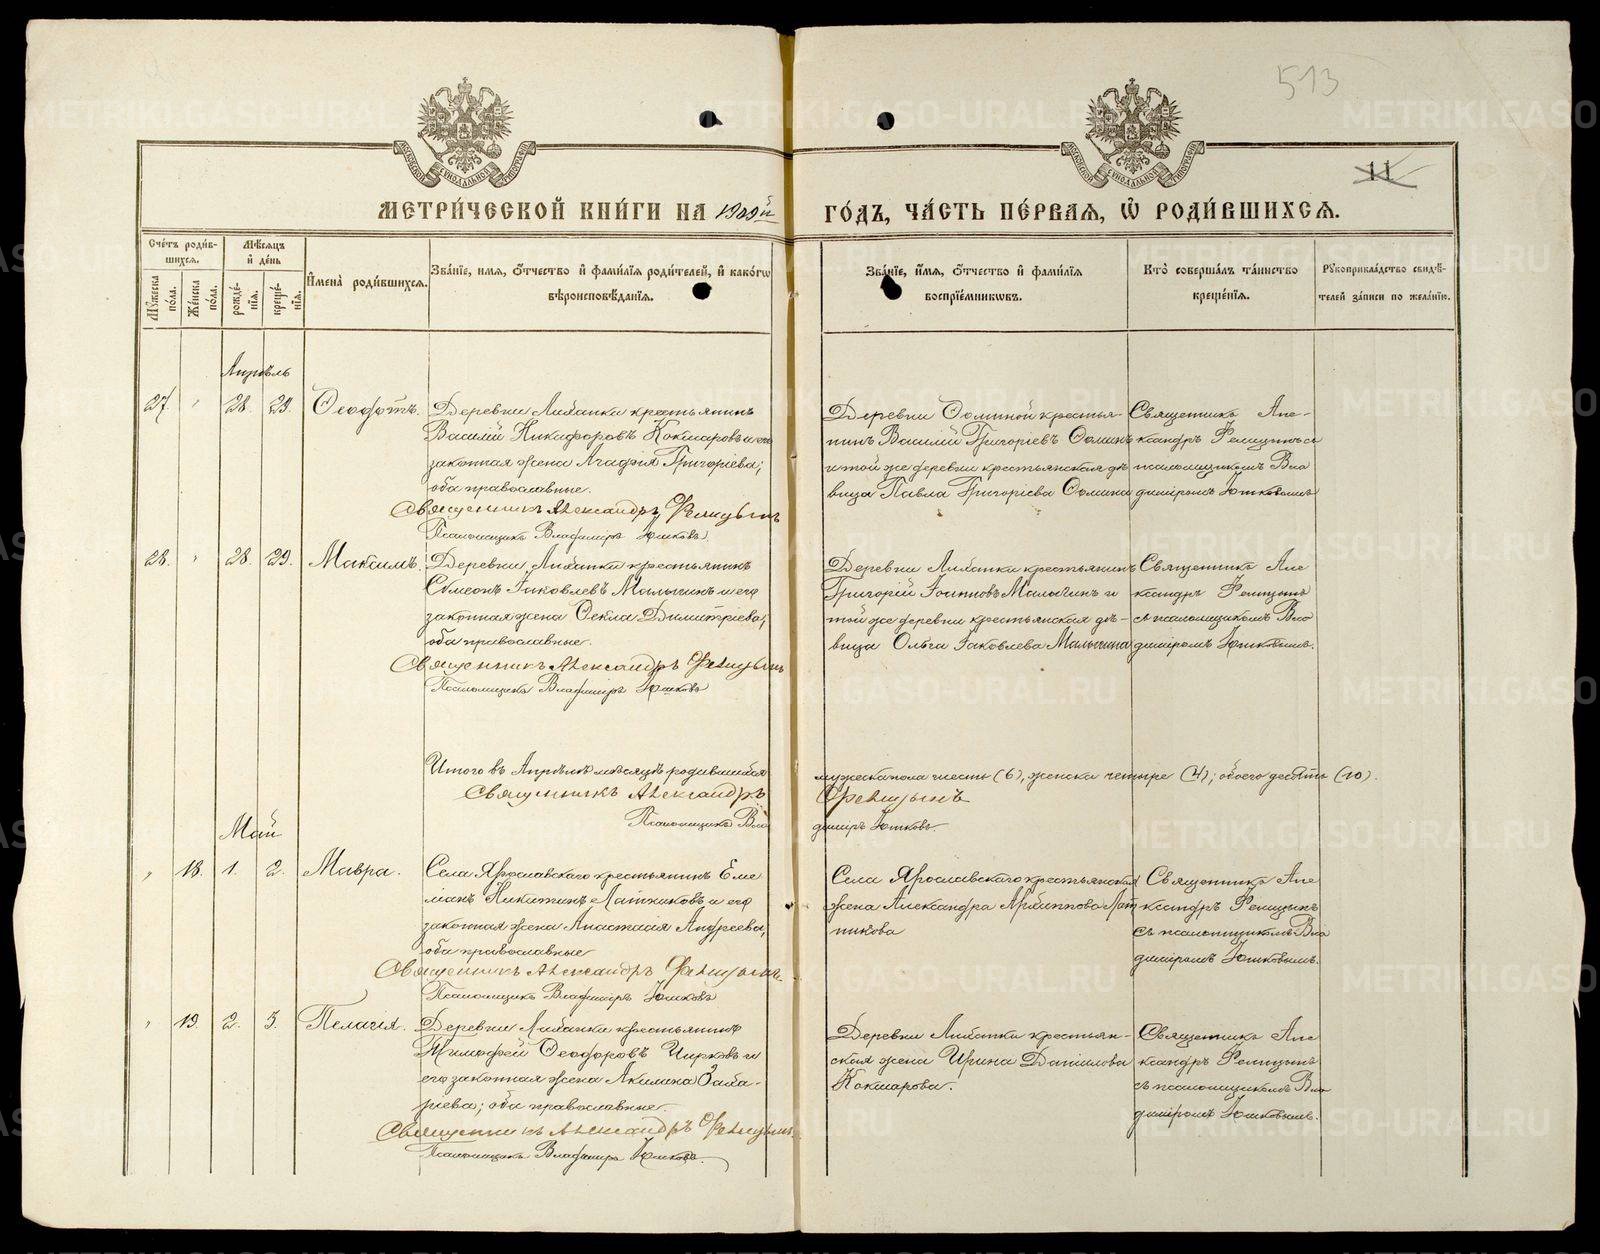 513
11
МЕТРИ́ЧЕСКОЙ КНИ́ГИ НА 1909й ГО́ДЪ, ЧА́СТЬ ПЕ́РВАѦ, Ѡ҆ РОДИ́ВШИХСѦ.
Сче́тъ роди́в-
шихсѧ.
Мѣ́сѧцъ
и҆ де́нь
Мꙋ́жеска
по́ла.
Же́нска
по́ла.
рожде́-
нїѧ.
креще́-
нїѧ.
И҆мена̀ роди́вшихсѧ.
Зва́нїе, и҆мѧ, ѻ҆́тчество и҆ фами́лїѧ роди́телей, и҆ како́гѡ
вѣроисповѣ́данїѧ.
Зва́нїе, и҆́мѧ, ѻ҆́тчество и҆ фами́лїѧ
воспрїе́мникѡвъ.
Кто̀ соверша́лъ та́инство
креще́нїѧ.
Рꙋкоприкла́дство свидѣ́-
телей за́писи по жела́нїю.
Апрѣль
27. " 28. 29. Ѳеофотъ.
Деревни Лиханки крестьянинъ
Василій Никифоровъ Кокшаровъ и его
законная жена Агафія Григоріева;
оба православные.
Священникъ Александръ Фелицынъ
Псаломщикъ Владиміръ Юшковъ.
Деревни Ѳоминой крестья-
нинъ Василій Григоріевъ Ѳоминъ
и той же деревни крестьянская дѣ
вица Павла Григоріева Ѳомина
Священникъ Але-
ксандръ Фелицынъ съ
псаломщикомъ Вла
диміромъ Юшковымъ
28. " 28. 29. Максимъ.
Деревни Лиханки крестьянинъ
Сѵмеонъ Іаковлевъ Малыгинъ и его
законная жена Ѳекла Димитріева;
оба православные.
Священникъ Александръ Фелицынъ
Псаломщикъ Владиміръ Юшковъ
Деревни Лиханки крестьянинъ
Григорій Іоанновъ Малыгинъ и
той же деревни крестьянская дѣ-
вица Ольга Іаковлева Малыгина
Священникъ Але
ксандръ Фелицынъ
съ псаломщикомъ Вла
диміромъ Юшковымъ.
Итого въ Апрѣлѣ мѣсяцѣ родившихся мужеска пола шесть (6), женска четыре (4); обоего десять (10).
Священникъ Александръ Фелицынъ
Псаломщикъ Владиміръ Юшковъ.
Май
" 18. 1. 2. Мавра.
Села Ярославскаго крестьянинъ Еме
лианъ Никитинъ Латниковъ и его
законная жена Анастасія Андреева;
оба православные
Священникъ Александръ Фелицынъ.
Псаломщикъ Владиміръ Юшковъ
Села Ярославскаго крестьянская
жена Александра Архиппова Лат
никова
Священникъ Але
ксандръ Фелицынъ
съ псаломщикомъ Вла
диміромъ Юшковымъ.
" 19. 2. 3. Пелагія.
Деревни Лиханки крестьянинъ
Тимофей Ѳеодоровъ Чирковъ и
его законная жена Акилина Заха-
ріева; оба православные.
Священникъ Александръ Фелицынъ
Псаломщикъ Владиміръ Юшковъ.
Деревни Лиханки крестьян-
ская жена Ирина Даніилова
Кокшарова.
Священникъ Але
ксандръ Фелицынъ
съ псаломщикомъ Вла
диміромъ Юшковымъ.
METRIKI.GASO-URAL.RU